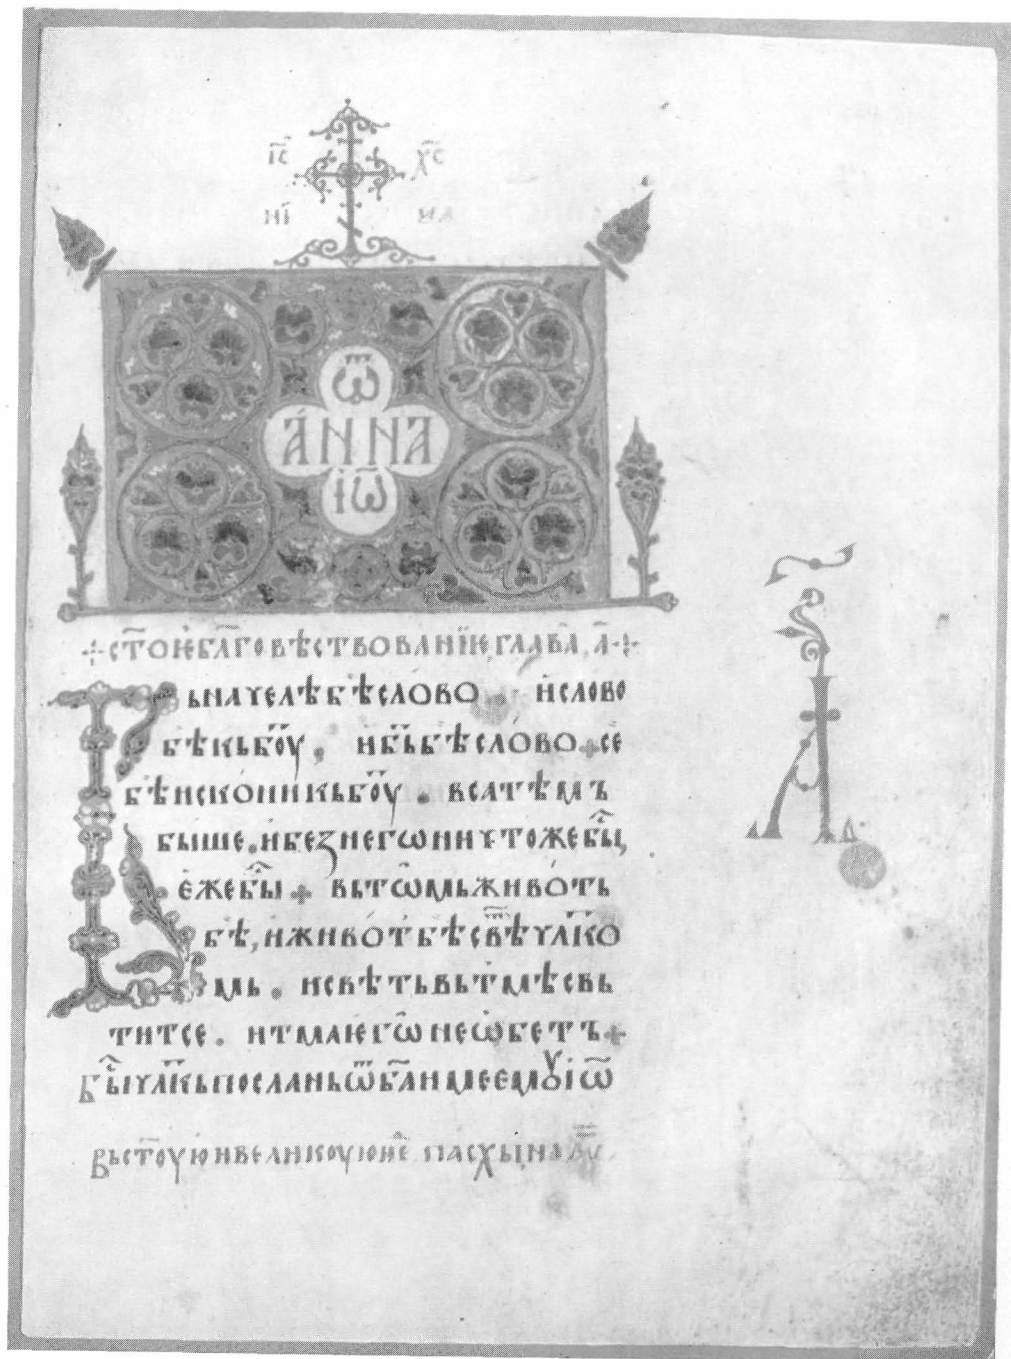 І҃С Х҃С
НИ КА
Ѿ
А́ННА
ІѠ҃
⁘ст҃оѥбл҃говѣствованїѥ, глав҃а, а҃⁘
Вьначелѣбѣслово. ѝслово
бѣкьбо҃у, ѝб҃ьбѣсло́во⁘се
бѣискѡниѝкьбо҃у. всатѣмъ
быше.ѝбезнегѡничтожебы҃,
е́жебы҃⁘ вьтѡ҃мьживо́ть
бѣ, ѝживо́т҃бѣсв҃ѣчл҃ко
мь. исвѣтьвьт҃мѣсвь
титсе. итмаѥгѡ҃неѡ҃бетъ⁘
бы҃чл҃кьпосланьѿб҃аимеемꙋіѡ҃
Вьст҃оуюивеликоуюне҃ пасхы, на
А